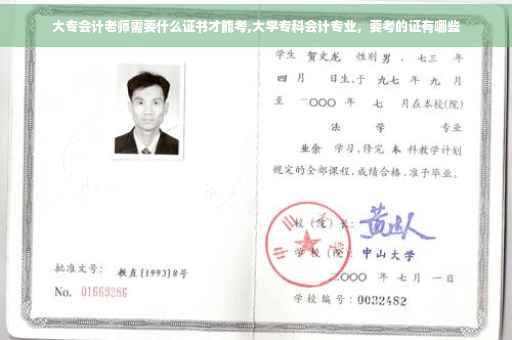 大专会计老师需要什么证书才能考,大学专科会计专业，要考的证有哪些
学生 贺文龙 性别 男，七三 年
四 月 日生,于 九七 年 九 月
至 二〇〇〇 年 七 月在本校(院)
法 学 专业
业余 学习,修完 本 科教学计划
规定的全部课程,成绩合格,准予毕业。
校(院)长:
学校(院): 中山大学
批准文号: 教直[1993]8号
二〇〇〇 年 七 月 一 日
No. 01669286
学校编号: 0032482